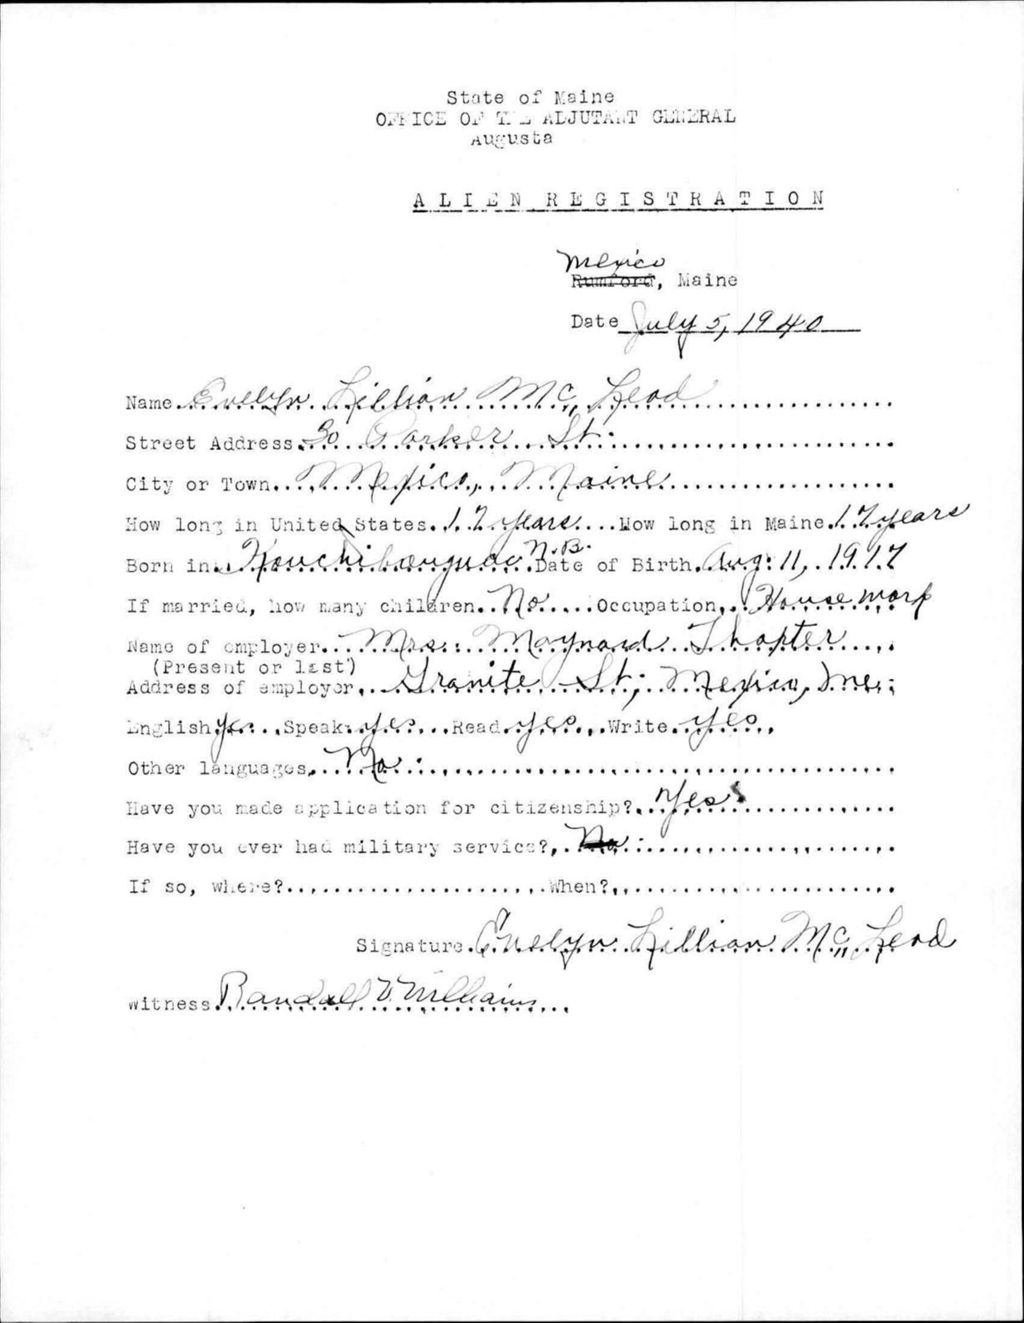 State of Maine
OFFICE OF THE ADJUTANT GENERAL
Augusta
ALIEN REGISTRATION
Mexico
Rumford, Maine
Date July 5, 1940
Name Evelyn Lillian Mc Leod
Street Address 30 Parker St.
City or Town Mexico, Maine
How long in United States 17 years How long in Maine 17 years
Born in Kouchibouguac N.B. Date of Birth Aug. 11, 1917
If married, how many children No Occupation House work
Name of employer Mrs. Maynard Thapter
(Present or last)
Address of employer Granite St, Mexico, Me.
English Yes Speak yes Read yes Write yes
Other languages No
Have you made application for citizenship? Yes
Have you ever had military service? No
If so, where? When?
Signature Evelyn Lillian Mc Leod
Witness Randall Williams